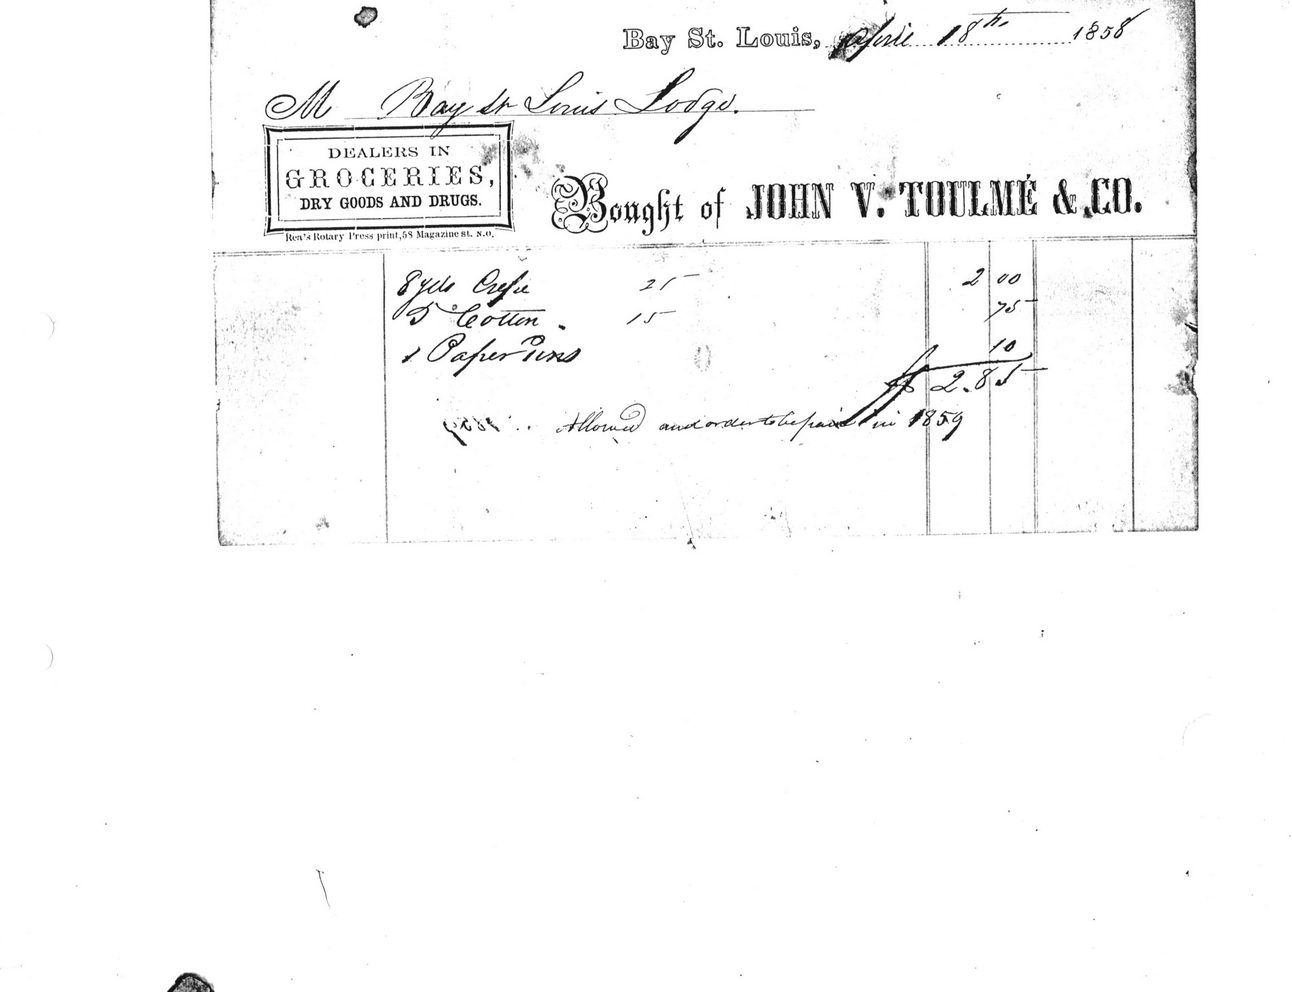 Bay St. Louis, Aprile 18th 1858
M Bay St Louis Lodge.
DEALERS IN
GROCERIES,
DRY GOODS AND DRUGS.
Rea's Rotary Press print, 58 Magazine st. N.O.
Bought of JOHN V. TOULMÉ & CO.
8 yds Crepe 25 2 00
5 " Cotton. 15 75
1 Paper Pins 10
$ 2.85
Allowed and order to be paid in 1859